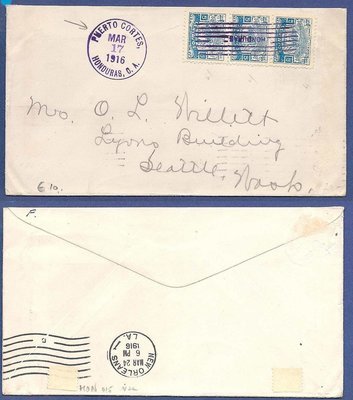 PUERTO CORTES,
MAR
17
1916
HONDURAS, C. A.
HONDURAS
Mrs. O. L. Willett
Lyons Building
Seattle,
Wash.
£10.
F.
NEW ORLEANS
LA.
MAR 24
6 PM
1916
HON 015